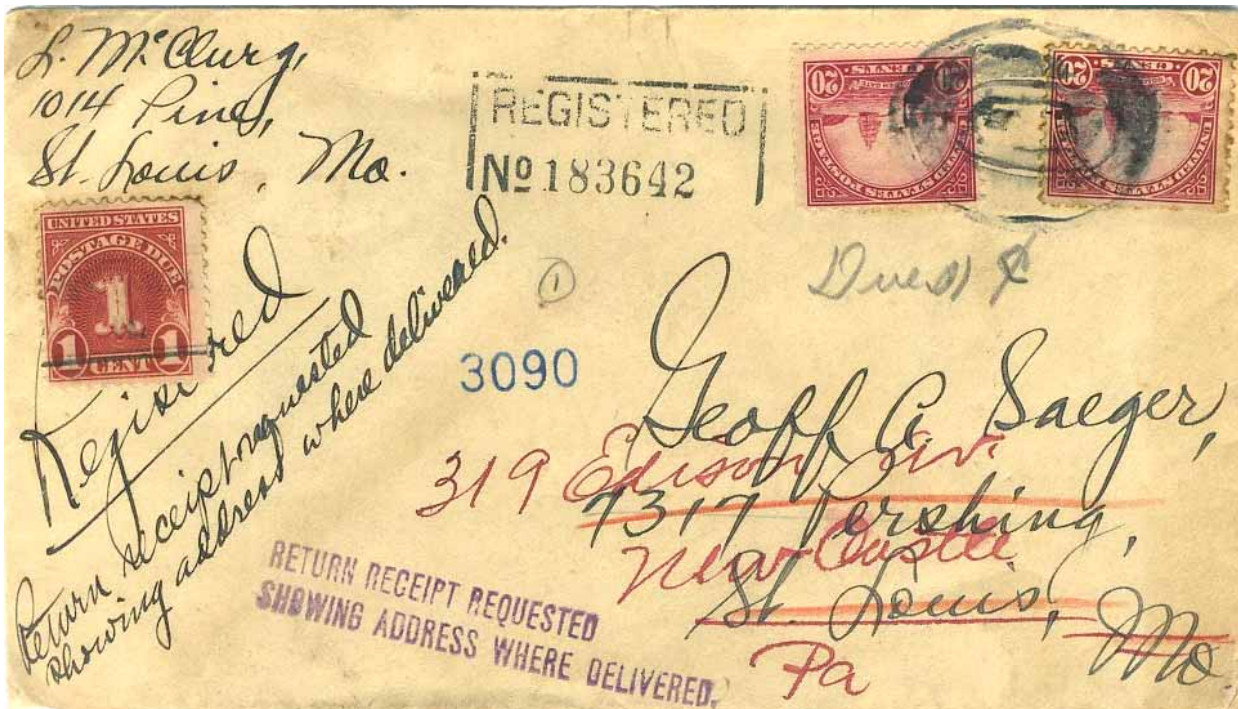 L. McClurg,
1014 Pine,
St. Louis, Mo.
REGISTERED
No 183642
20 CENTS 20
UNITED STATES POSTAGE
20 CENTS 20
UNITED STATES POSTAGE
UNITED STATES
POSTAGE DUE
1
1 CENT 1
Registered
Return receipt requested
showing address where delivered.
1
Due 1 ¢
3090
Geoff A. Saeger,
319 Edison Av.
7317 Pershing,
New Castle
St. Louis, Mo
Pa
RETURN RECEIPT REQUESTED
SHOWING ADDRESS WHERE DELIVERED.